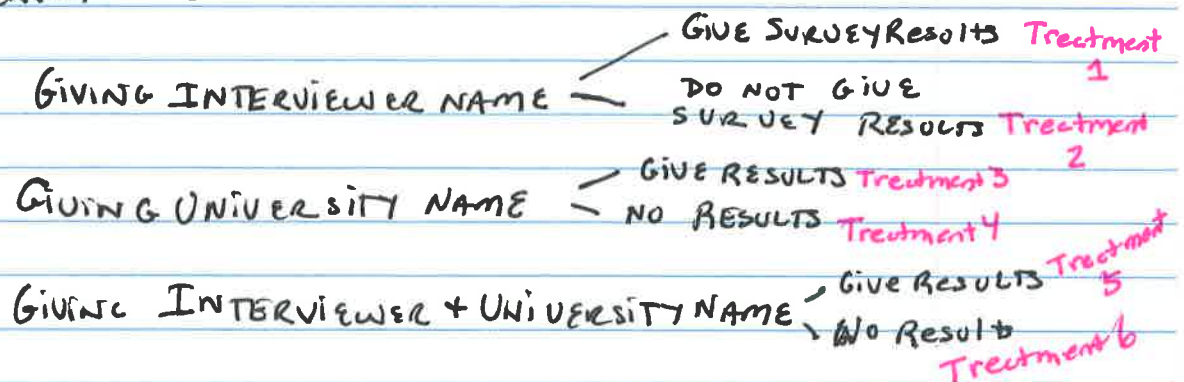 GIVE SURVEY Results Treatment 1
GIVING INTERVIEWER NAME
DO NOT GIVE
SURVEY RESULTS Treatment 2
GIVING UNIVERSITY NAME
GIVE RESULTS Treatment 3
NO RESULTS Treatment 4
GIVING INTERVIEWER + UNIVERSITY NAME
Give Results Treatment 5
No Results
Treatment 6